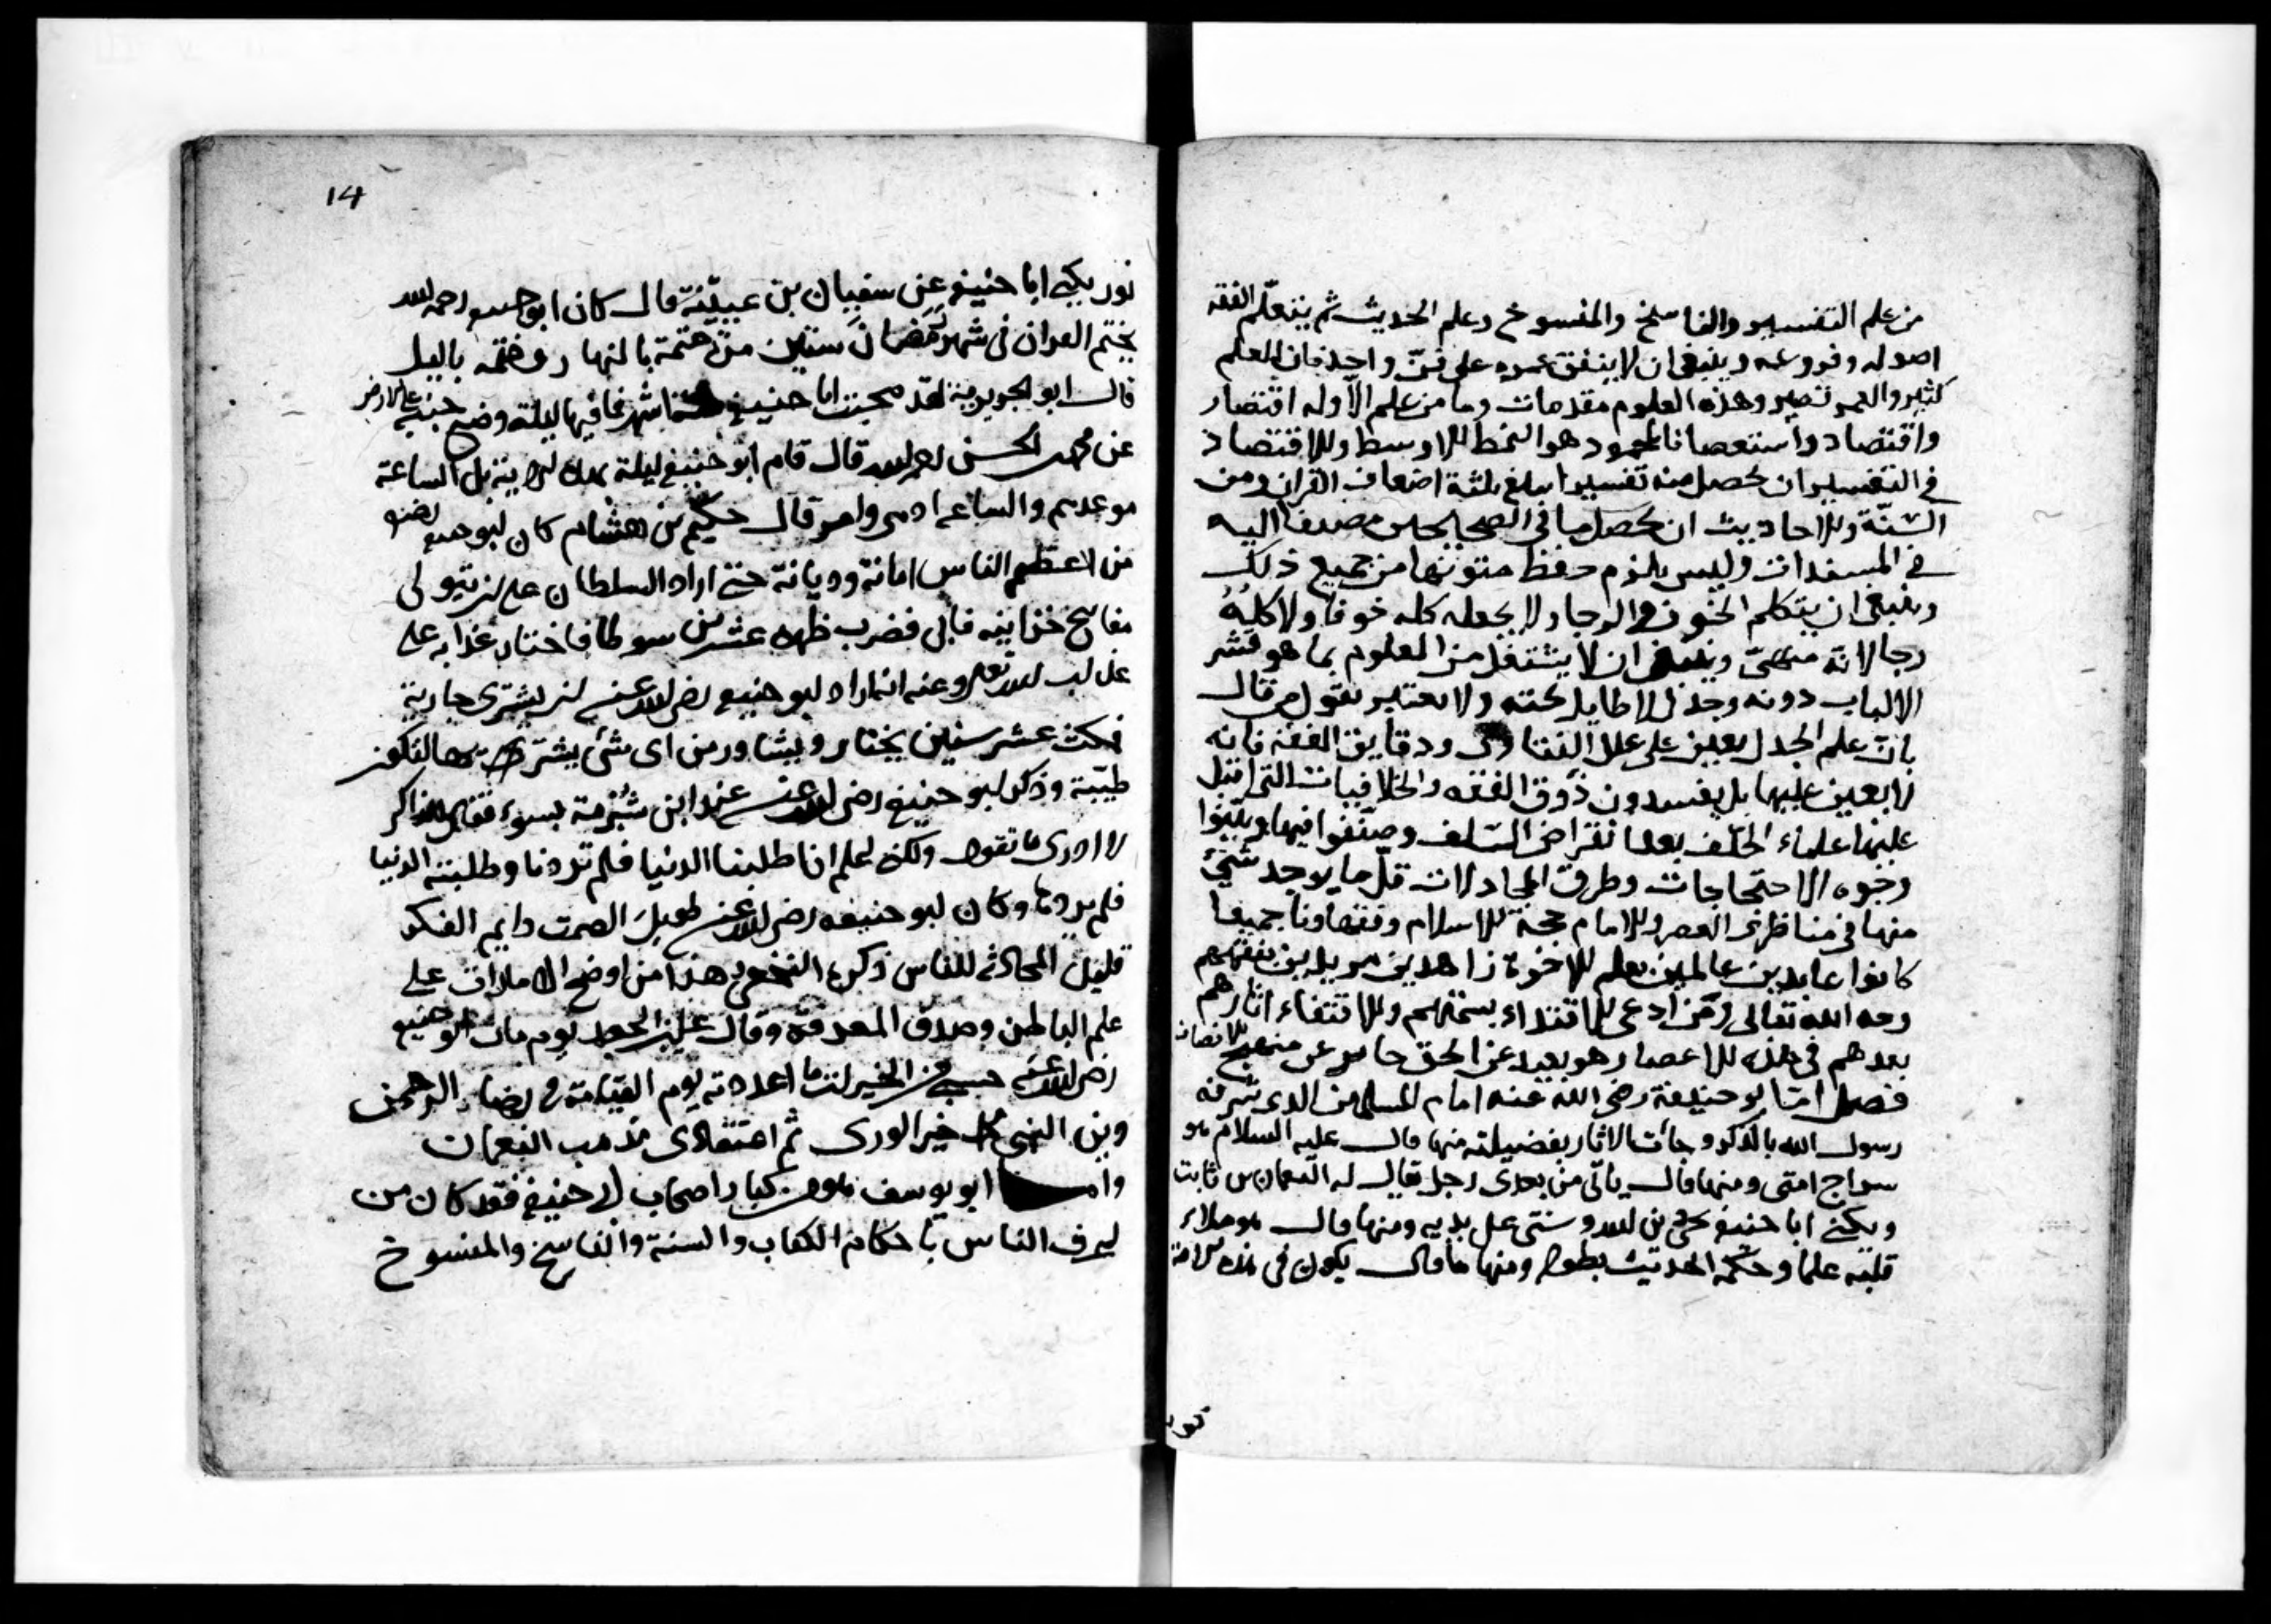 من علم التفسير والناسخ والمنسوخ وعلم الحديث ثم يتعلّم الفقه
اصوله وفروعه وينبغى ان لا ينفق عمره على فنّ واحد فان العلم
كثير والعمر قصير وهذه العلوم مقدمات وما من علم الا وله اقتصار
واقتصاد واستقصا فالمحمود هو النمط الاوسط والاقتصاد
فى التفسير ان يحصل منه تفسيرا يبلغ ثلثة اضعاف القران ومن
السّنّة والاحاديث ان يحصل ما فى الصحايح
فى المسندات وليس يلزم حفظ متونها من جميع ذلك
وينبغى ان يتكلم الخوف والرجا ولا يجعله كله خوفا ولا كلهُ
رجا لانه منهىّ وينبغى ان لا يشتغل من العلوم بما هو قشر
الالباب دونه وجدل لا طايل تحته ولا يعتبر بقول من قال
بانّ علم الجدل يعين على علل الفتاوى ودقايق الفقه فانه
لا يعين عليها بل يفسدون ذوق الفقه والخلافيات التى اقبل
عليها علماء الخلف بعد انقراض السّلف وصنّفوا فيها وبيّنوا
وجوه الاحتجاجات وطرق المجادلات قلّ ما يوجد شىء
منها فى مناظرى العصر والامام حجة الاسلام وفقهاونا جميعا
كانوا عابدين عالمين بعلم الاخرة زاهدين مريدين بفقههم
وجه الله تعالى ومن ادعى الاقتداء بسمتهم والاقتفاء اثارهم
بعدهم فى هذه الاعصار هو بعيد عن الحق جاير عن منهج الانصاف
فصل امّا ابو حنيفة رضى الله عنه امام المسلمين الذى شرفه
رسول الله بالذكر وجأت الاثار بفضيلته منها قال عليه السلام هو
سراج امتى ومنها قال ياتى من بعدى رجل يقال له النعمان بن ثابت
ويكنى ابا حنيفة يحيى دين الله وسنتى على يديه ومنها قال هو ملاء
قلبه علما وحكمة الحديث بطوله ومنها ما قال يكون فى هذه الامة
14
نور يكنى ابا حنيفة عن سفيان بن عيينة قال كان ابو حنيفة رحمه الله
يختم القران فى شهر رمضان ستين مرّة ختمة بالنهار وختمة بالليل
قال ابو الجويرية لقد صحبت ابا حنيفة اشهرا فما فيها ليلة وضع جنبه على الارض
عن محمد بن الحسن رحمه الله قال قام ابو حنيفة ليلة بهذه الاية بل الساعة
موعدهم والساعة ادهى وامر قال حكيم بن هشام كان ابو حنيفة رضه
من اعظم الناس امانة وديانة حتى اراد السلطان على ان يتولى
مفاتيح خزاينه فابى فضرب ظهره عشرين سوطا فاختار عذابه على
عذاب الله تعالى وعنه انه اراد ابو حنيفة رضى الله عنه ان يشترى جارية
فمكث عشر سنين يختار ويشاور من اى شىء يشترى
طيّبة وذكر ابو حنيفة رضى الله عنه عند ابن شبرمة بسوء فقال للذاكر
لا ادرى ما تقول ولكن اعلم انا طلبنا الدنيا فلم تردنا وطلبته الدنيا
فلم يردها وكان ابو حنيفة رضى الله عنه طويل الصمت دايم الفكر
قليل المحادثة للناس ذكره النخعى هذا من اوضح الامارات على
علم الباطن وصدق المعرفة وقال على بن الجعد يوم مات ابو حنيفة
رضى الله عنه حسبى من الخيرات ما اعددته يوم القيامة فى رضاء الرحمن
دين النبى محمد خير الورى ثم اعتقادى مذهب النعمان
واما ابو يوسف وهو من كبار اصحاب ابى حنيفة فقد كان من
اعرف الناس باحكام الكتاب والسنة والناسخ والمنسوخ